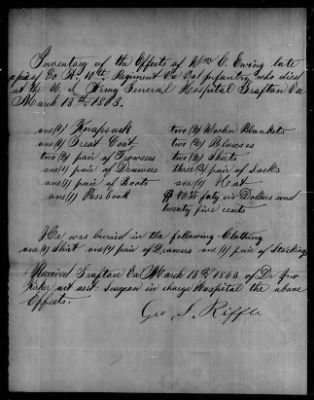 Inventory of the Effects of Wm C. Ewing late
of Co A. 10th Regiment Va Vol Infantry who died
at the U. S. Army General Hospital Grafton Va
March 13th 1863.
one (1) Knapsack two (2) Woolen Blankets
one (1) Great Coat two (2) Blouses
two (2) pair of Trowsers two (2) Shirts
one (1) pair of Drawers three (3) pair of Socks
one (1) pair of Boots one (1) Hat
one (1) Passbook Dollars and
twenty five cents
He was buried in the following Clothing
one (1) Shirt one (1) pair of Drawers one (1) pair of Stockings
Received Grafton Va March 13th 1863 of Dr
act asst Surgeon in charge Hospital the above
Effects.
Geo. I. Riffle